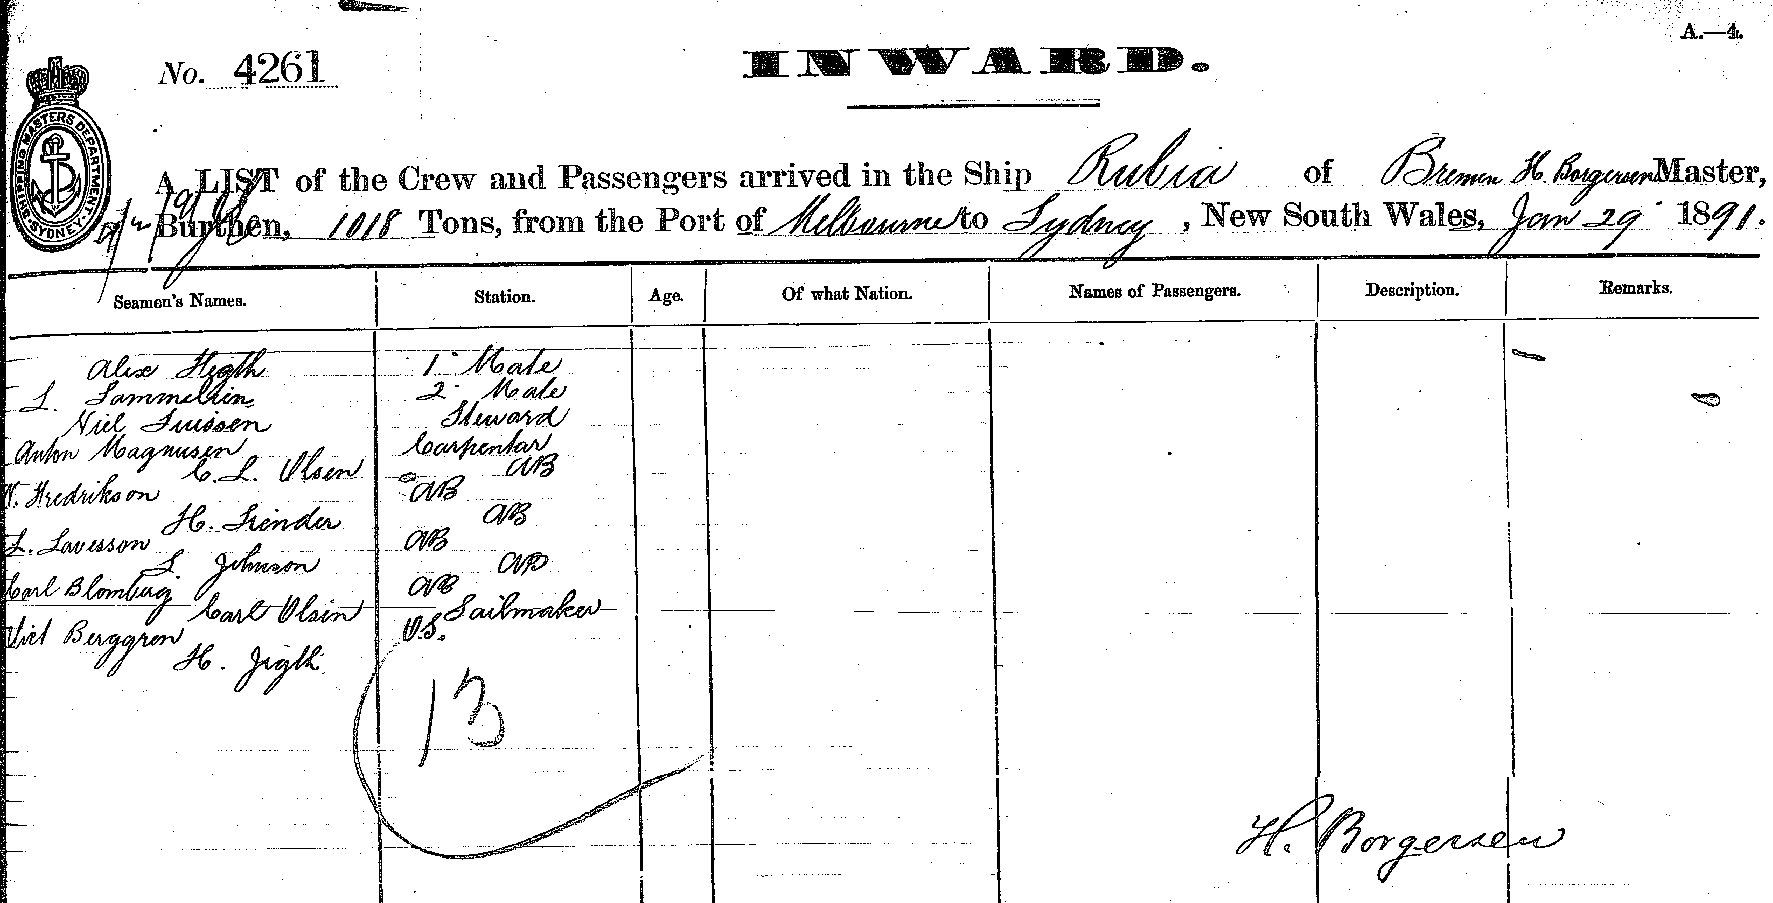 A.—4.
No. 4261
INWARD.
SHIPPING MASTERS DEPARTMENT SYDNEY
A LIST of the Crew and Passengers arrived in the Ship Rubia of Bremen H. Borgersen Master,
Burthen, 1018 Tons, from the Port of Melbourne to Sydney, New South Wales, Jan 29 1891.
Seamen's Names. Station. Age. Of what Nation. Names of Passengers. Description. Remarks.
Alex 1 Mate
L. 2 Mate
Steward
Anton Magnusen Carpentar
C. L. Olsen AB
Fredrikson AB
H. AB
L. Lavesson AB
L. Johnson AB
Carl Blomberg AB
Carl Olsin Sailmaker
Berggren O.S.
H.
13
H. Borgersen